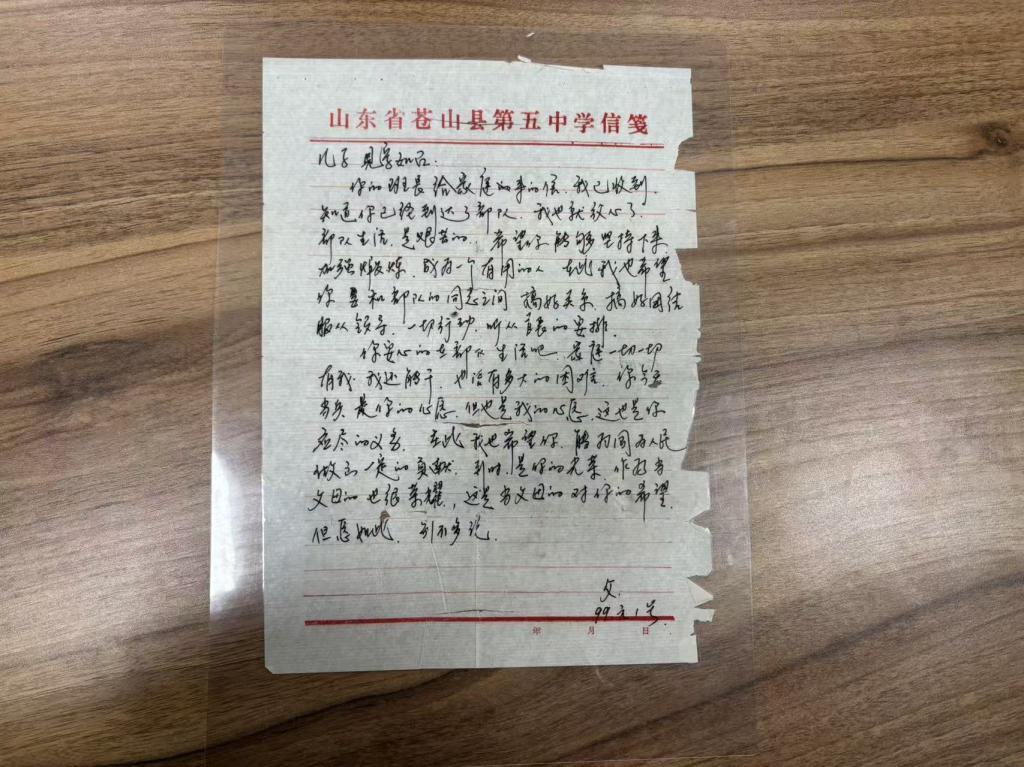 山东省苍山县第五中学信笺
儿子 见字如面:
你的班长给家庭的来的信,我已收到,
知道你已经到达了部队,我也就放心了.
部队生活是艰苦的,希望你能够坚持下来,
加强煅炼,成为一个有用的人 在此我也希望
你 和部队的同志之间 搞好关系,搞好团结
服从领导,一切行动,听从首长的安排.
你安心的在部队生活吧,家庭一切一切
有我,我还能干,也没有多大的困难,你
当兵是你的心愿,但也是我的心愿,这也是你
应尽的义务,在此我也希望你,能为国为人民
做出一定的贡献,到时,是你的光荣 作为当
父母的也很荣耀,这是当父母的对你的希望,
但愿如此,别不多说.
父.
99.元1号.
年 月 日